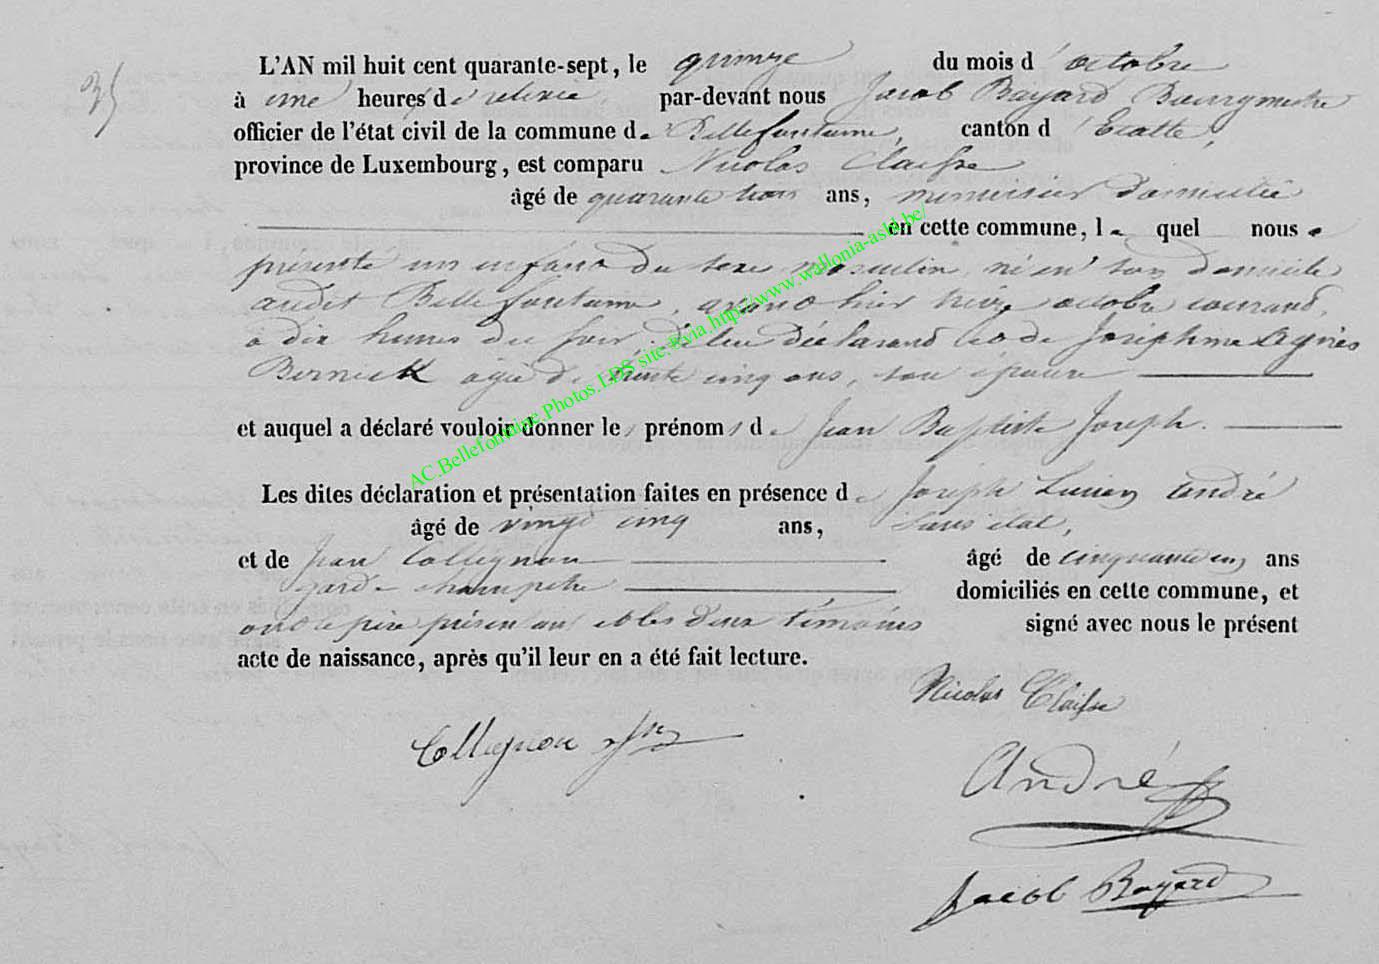 35
L'AN mil huit cent quarante-sept, le quinze du mois d'octobre
à une heure de relevée par-devant nous Jacob Bayard Bourgmestre
officier de l'état civil de la commune de Bellefontaine, canton d'Etalle,
province de Luxembourg, est comparu Nicolas Claisse
âgé de quarante trois ans, menuisier domicilié
en cette commune, le quel nous
présente un enfant du sexe masculin, né en son domicile
audit Bellefontaine, avant hier treize octobre courant,
à dix heures du soir, de lui déclarant et de Joséphine Agnès
Bernick âgée de trente cinq ans, son épouse
et auquel a déclaré vouloir donner les prénoms de Jean Baptiste Joseph.
Les dites déclaration et présentation faites en présence de Joseph Lucien André
âgé de vingt cinq ans, sans état,
et de Jean Collignon âgé de cinquante un ans
garde champêtre domiciliés en cette commune, et
ont le père présentant et les deux témoins signé avec nous le présent
acte de naissance, après qu'il leur en a été fait lecture.
Nicolas Claisse
Collignon
André
Jacob Bayard
AC.Bellefontaine.Photos.LDS site.®via.http://www.wallonia-asbl.be/